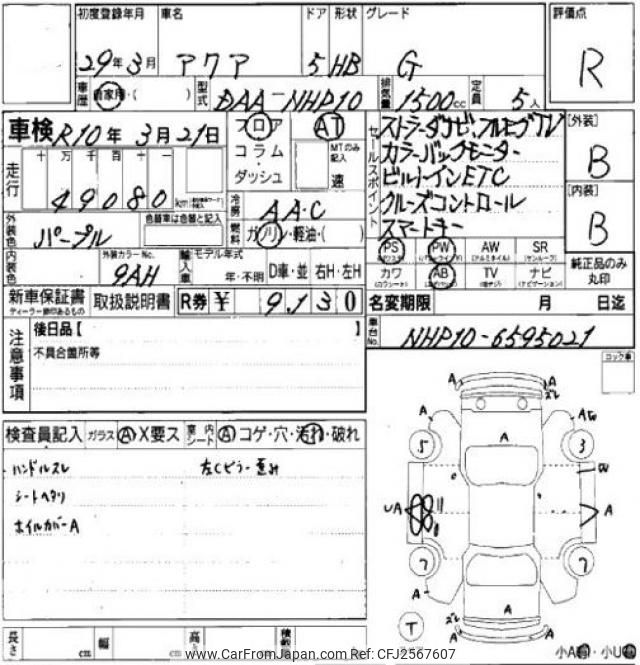 初度登録年月 車名 ドア 形状 グレード 評価点
29年3月 アクア 5 HB G R
車歴 自家用・( ) 型式 DAA-NHP10 排気量 1500cc 定員 5人
車検 R10年3月21日 フロア AT
コラム・ MTのみ記入
ダッシュ 速
走行 十 万 千 百 十 一
49080 km
セールスポイント
ストラーダナビ、フルセグTV
カラーバックモニター
ビルトインETC
クルーズコントロール
スマートキー
[外装]
B
[内装]
B
冷房 AAC
外装色 パープル 色替車は色替と記入 燃料 ガソリン・軽油・( )
内装色 外装カラーNo. 9AH 輸入車 モデル年式 年・不明 D車・並 右H・左H
PS PW AW SR
(パワーウインドウ) (アルミホイル) (サンルーフ)
カワ AB TV ナビ
(ナビゲーション)
純正品のみ丸印
新車保証書 取扱説明書 R券 ¥ 9,130
ディーラー捺印あるもの
名変期限 月 日迄
車台No. NHP10-6595021
注意事項
後日品【 】
不具合箇所等
コック車
検査員記入 ガラス A・X要ス 室内シート A・コゲ・穴・汚れ・破れ
ハンドルスレ 左Cピラー歪み
シートヘタリ
ホイルカバーA
A A
A A
5 A 3
W
UA A
7 7
A A
T A
小A有・小U有
長さ cm 幅 cm 高さ cm
www.CarFromJapan.com Ref: CFJ2567607